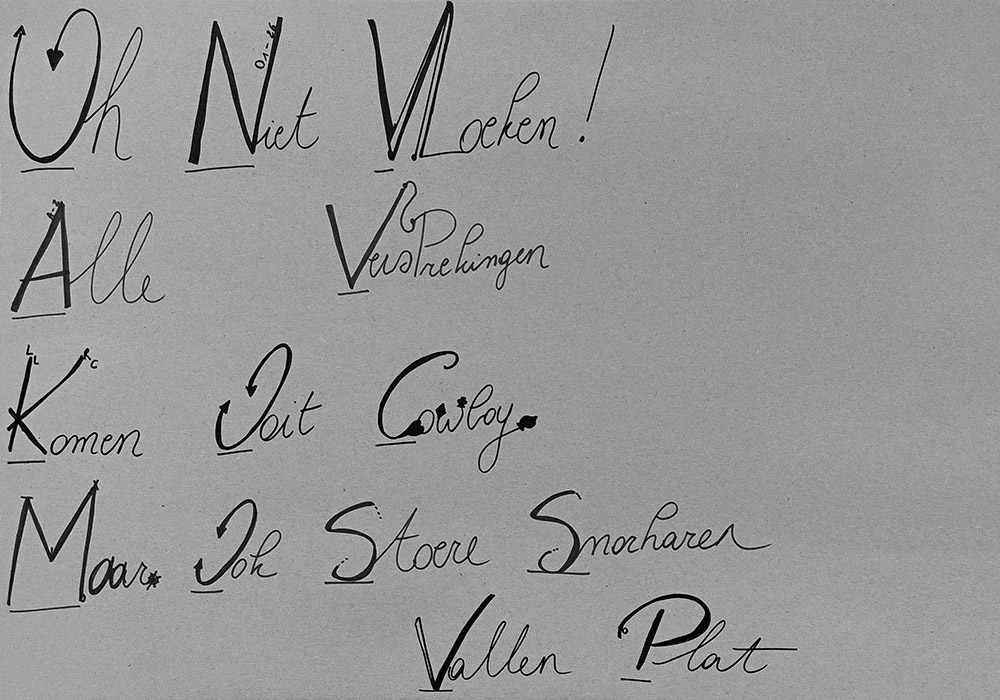 Oh Niet VLoeken!
Alle Versprekingen
Komen Ooit Cowboy.
Maar Ook Stoere Snorharen
Vallen Plat